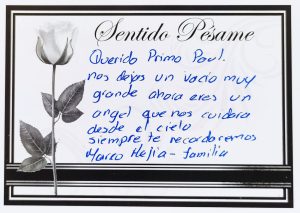 Sentido Pésame
Querido Primo Paul.
nos dejas un vacio muy
grande ahora eres un
angel que nos cuidara
desde el cielo
siempre te recordaremos
Marco Mejia - familia